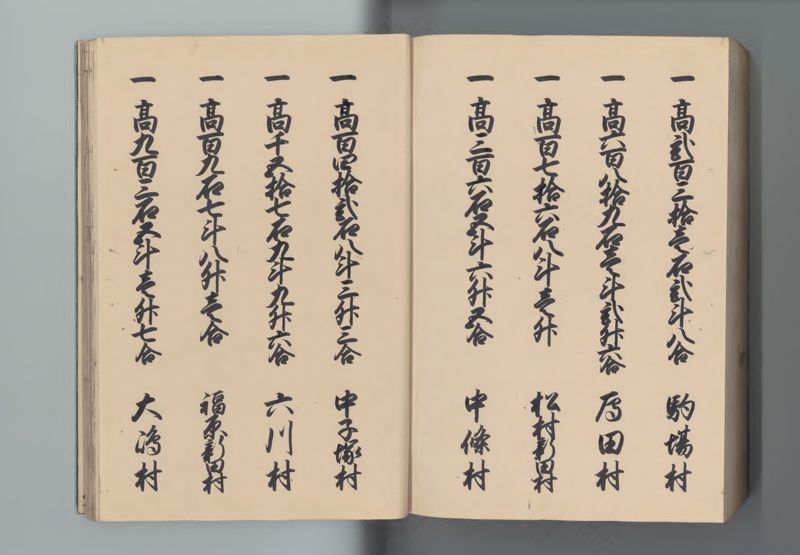 一 高弐百三拾壱石弐斗八合 駒場村
一 高六百八拾九石壱斗弐升六合 雁田村
一 高百七拾六石八斗壱升 松村新田村
一 高三百六石五斗六升五合 中條村
一 高百四拾弐石八斗三升三合 中子塚村
一 高千五拾七石九斗九升六合 六川村
一 高百九石七斗八升壱合 福原新田村
一 高九百三石五斗壱升七合 大嶋村